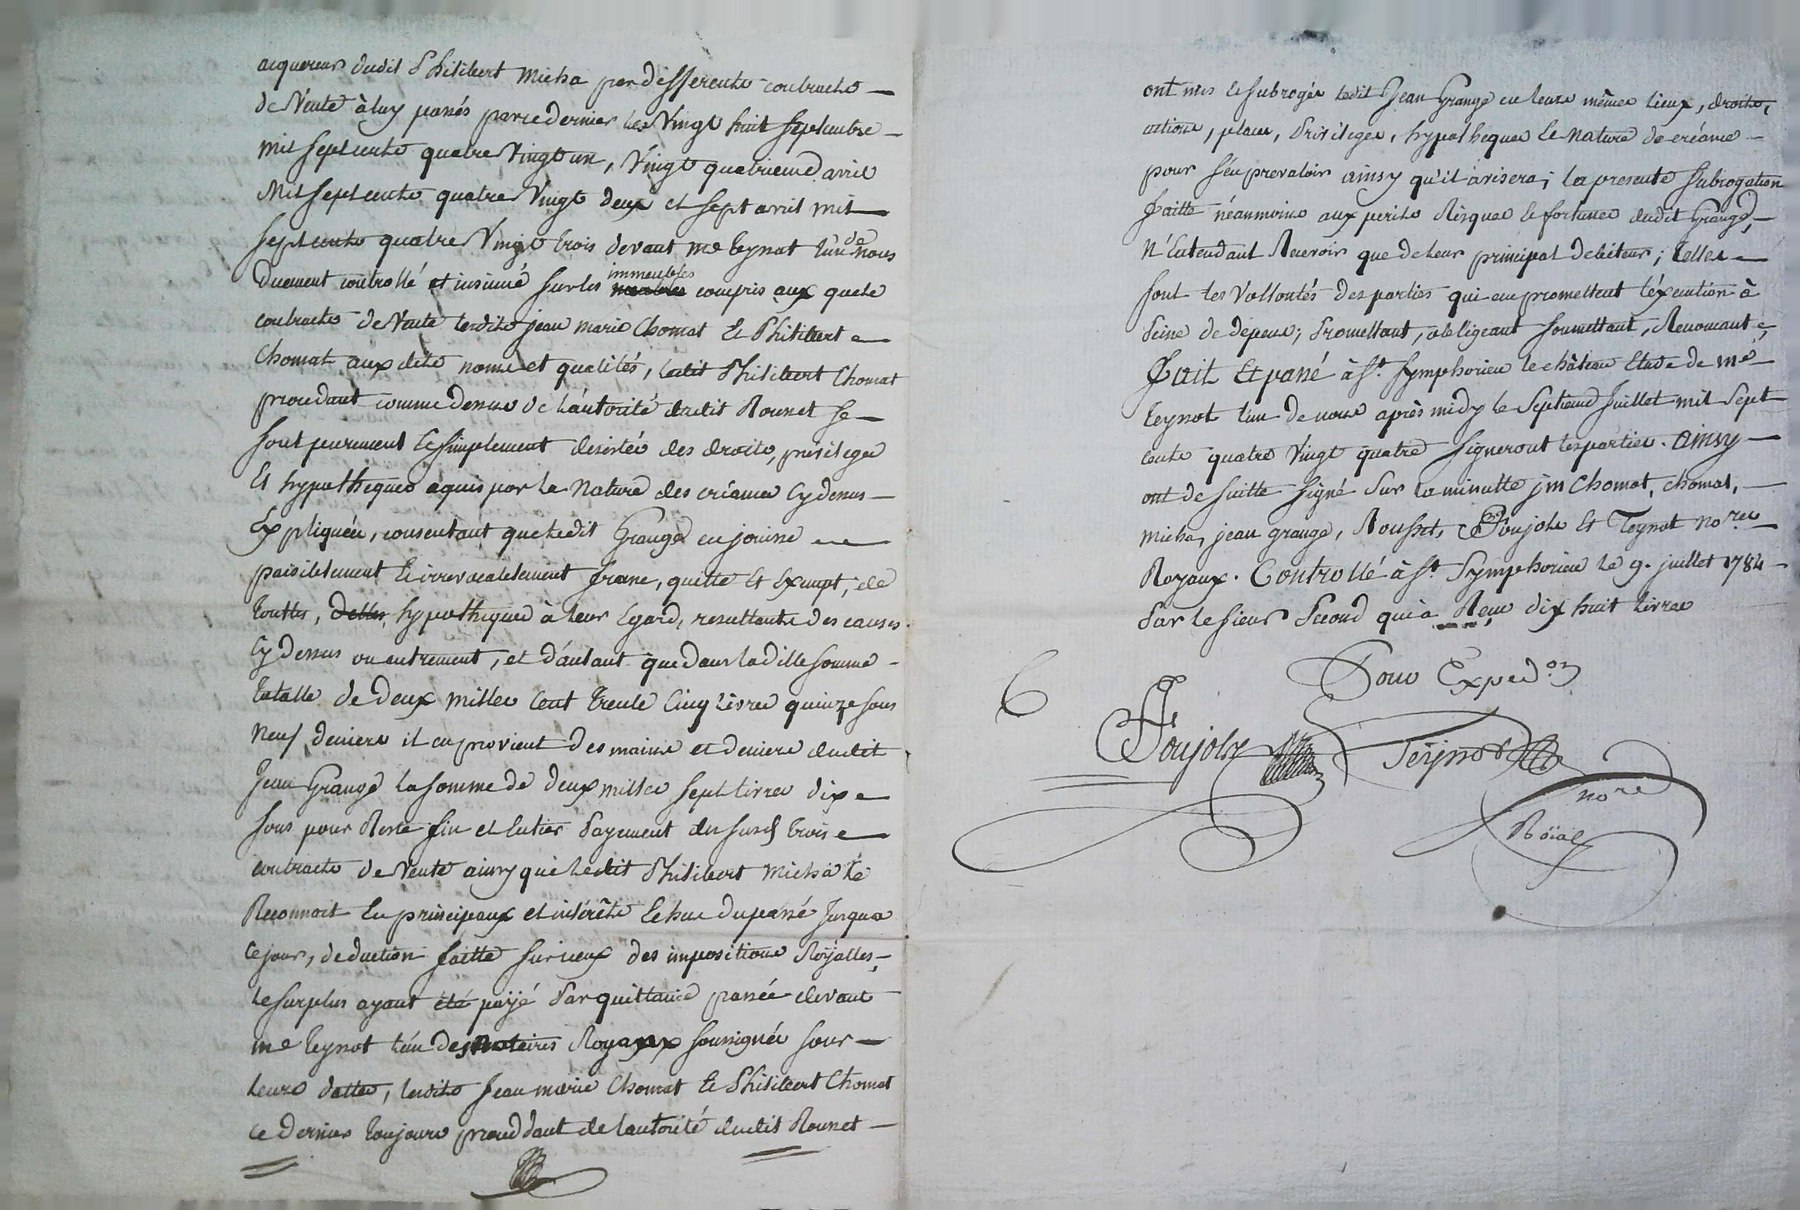 acquereurs dudit Philibert Micha par differents contracts
de Vente à luy passés par ce dernier les Vingt huit Septembre
mil sept cents quatre Vingt un, Vingt quatrieme avril
Mil sept cents quatre Vingt deux et sept avril mil
sept cents quatre Vingt trois devant me teynot l'un de nous
Duement controllé et insinué sur les immeubles meubles compris aux quels
contracts de Vente lesdits jean marie Chomat Et Philibert
Chomat aux dits noms et qualités, ledit Philibert Chomat
procedant comme dessus de l'autorité dudit Rousset se
sont purement Et simplement desistés des droits, privileges
Et hypotheques aquis par la Nature des créances Cy dessus
Expliquées, consentant que ledit Grange en jouisse
paisiblement Et irrevocablement franc, quitte Et Exempt, de
touttes, delles, hypotheques à leur Egard, resultants des causes
Cy dessus ou autrement, et d'autant que dans laditte somme
totalle de deux milles Cent trente Cinq Livres quinze sous
Neuf deniers il en provient des mains et deniers dudit
Jean Grange la somme de deux milles sept livres dix
sous pour Reste fin et Entier Payement des susd trois
contracts de Vente ainsy que ledit Philibert Micha le
Reconnoit En principaux et intérêts Echus du passé Jusqua
Ce jour, deduction faitte sur iceux des impositions Roÿalles,
le surplus ayant été paÿé Par quittance passée devant
me teynot l'un des Notaires Royaux soussignés sous
leurs dattes, lesdits Jean marie Chomat Et Philibert Chomat
ce dernier toujours procedant de l'autorité dudit Rousset
ont mis Et subrogés ledit Jean Grange en leurs mêmes lieux, droits,
actions, place, Privileges, hypotheques Et Nature de créance
pour s'en prevaloir ainsy qu'il avisera; la presente subrogation
faitte néanmoins aux perils Risques Et fortunes dudit Grange,
N'Entendant Recevoir que de leur principal debiteur; telles
sont les Vollontés des parties qui en promettent l'éxecution à
Peine de depens; Promettant, obligeant soumettant, Renonçant &,
Fait Et passé à St. Symphorien le château Etude de me
teynot l'un de nous après midy le Septieme Juillet mil Sept
Cents quatre Vingt quatre signeront les parties. Ainsy
ont de suitte signé Sur la minutte jm Chomat, chomat,
micha, jean grange, Rousset, Poujols Et Teynot nores
Royaux. Controllé à St. Symphorien le 9. juillet 1784
Par le sieur Second qui à Reçu dix huit livres
Pour Expedon
Poujols
Teynot
nore
Roïal